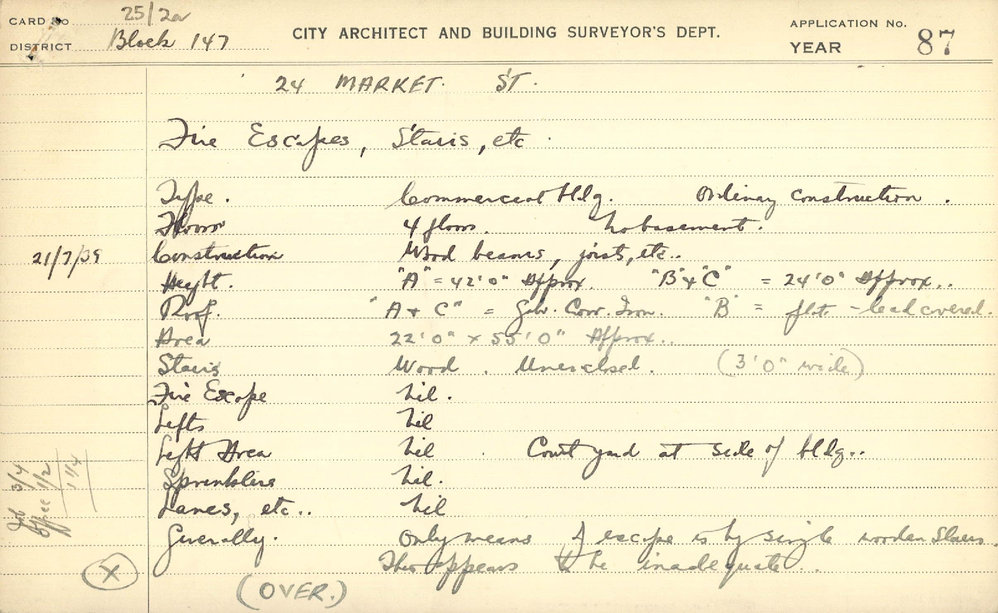 CARD No 25/2a
DISTRICT Block 147
CITY ARCHITECT AND BUILDING SURVEYOR'S DEPT.
APPLICATION No.
YEAR 87
24 MARKET. ST.
Fire Escapes, Stairs, etc.
Type. Commercial bldg. Ordinary construction.
Floors 4 floors. No basement.
21/7/39 Construction Wood beams, joist, etc..
Height. "A" = 42'0" Approx. "B & "C" = 24'0" Approx..
Roof. "A & C" = Galv. Corr. Iron. "B" = flat - lead covered.
Area 22'0" x 55'0" Approx..
Stairs Wood. Unenclosed. (3'0" wide)
Fire Escape Nil.
Lifts Nil
Light Area Nil. Court yard at side of bldg..
Sprinklers Nil.
Lanes, etc.. Nil
Generally. Only means of escape is by single wooden stairs.
This appears to be inadequate..
(OVER.)
X
Job 3/4
Office 1/2
1 1/4